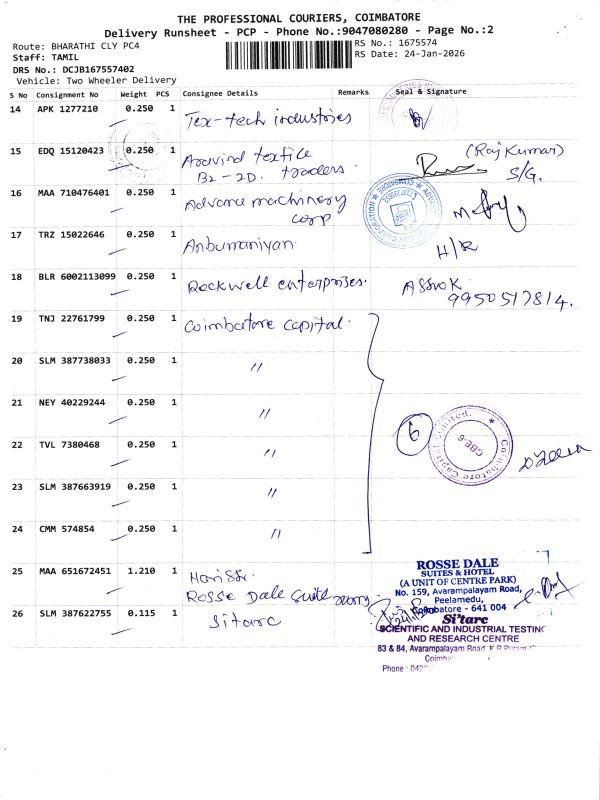 THE PROFESSIONAL COURIERS, COIMBATORE
Delivery Runsheet - PCP - Phone No.:9047080280 - Page No.:2
Route: BHARATHI CLY PC4
RS No.: 1675574
Staff: TAMIL
RS Date: 24-Jan-2026
DRS No.: DCJB167557402
Vehicle: Two Wheeler Delivery
S No Consignment No Weight PCS Consignee Details Remarks Seal & Signature
14 APK 1277210 0.250 1 Tex-tech industries
15 EDQ 15120423 0.250 1 Aravind textile (Raj Kumar)
B2-2D. traders. S/G.
16 MAA 710476401 0.250 1 Advance machinery
corp
17 TRZ 15022646 0.250 1 Anbumaniyan H/R
18 BLR 6002113099 0.250 1 Rockwell enterprises. Ashok
9950517814.
19 TNJ 22761799 0.250 1 Coimbatore capital.
20 SLM 387738033 0.250 1 "
21 NEY 40229244 0.250 1 "
6
Coimbatore Capital Limited.
CBE-6
22 TVL 7380468 0.250 1 "
23 SLM 387663919 0.250 1 "
24 CMM 574854 0.250 1 "
25 MAA 651672451 1.210 1
Rosse Dale Suite
ROSSE DALE
SUITES & HOTEL
(A UNIT OF CENTRE PARK)
No. 159, Avarampalayam Road,
Peelamedu,
Coimbatore - 641 004
26 SLM 387622755 0.115 1 Sitarc
Si'tarc
SCIENTIFIC AND INDUSTRIAL TESTING
AND RESEARCH CENTRE
83 & 84, Avarampalayam Road, K.R.Puram
Coimba
Phone : 042